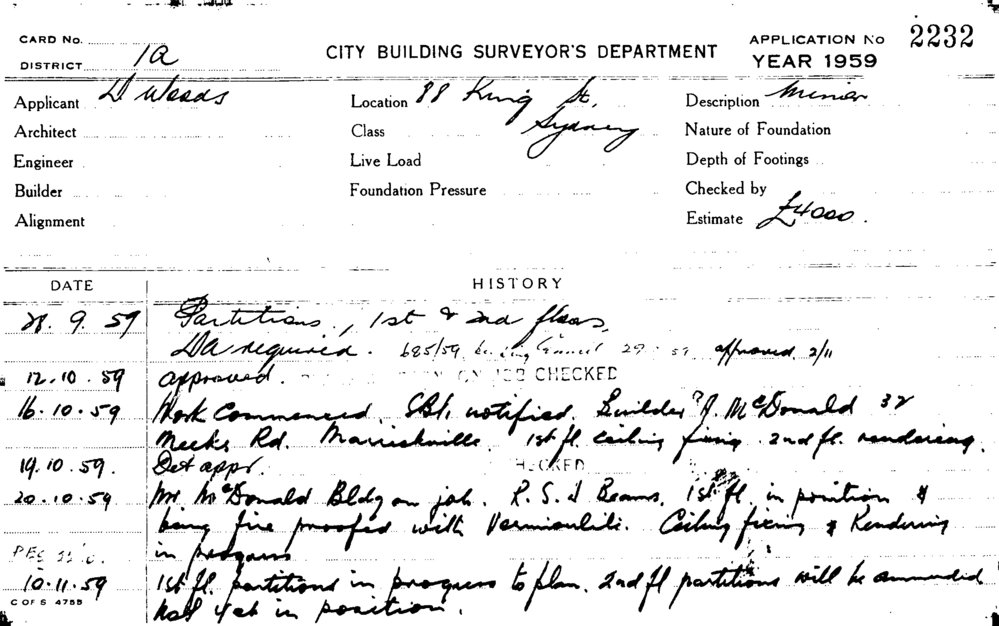 CARD No.
DISTRICT 1a
CITY BUILDING SURVEYOR'S DEPARTMENT
APPLICATION No 2232
YEAR 1959
Applicant D Woods
Location 88 King St, Sydney
Description Minor
Architect
Class
Nature of Foundation
Engineer
Live Load
Depth of Footings
Builder
Foundation Pressure
Checked by
Alignment
Estimate £4000.
DATE HISTORY
28.9.59 Partitions, 1st & 2nd floors,
DA required. 685/59 29 59 approved 2/11
12.10.59 approved. ON JOB CHECKED
16.10.59 Work Commenced. notified. Builder J. McDonald 32
Meeks Rd. Marrickville. 1st fl. ceiling fixing. 2nd fl. rendering.
19.10.59. Det appr.
20.10.59 Mr McDonald Bldg on job. R.S.J Beams. 1st fl. in position &
being fire proofed with Vermiculite. Ceiling fixing & Rendering
in progress
10.11.59 1st fl. partitions in progress to plan. 2nd fl partitions will be ammended
not yet in position.
C OF S 4755